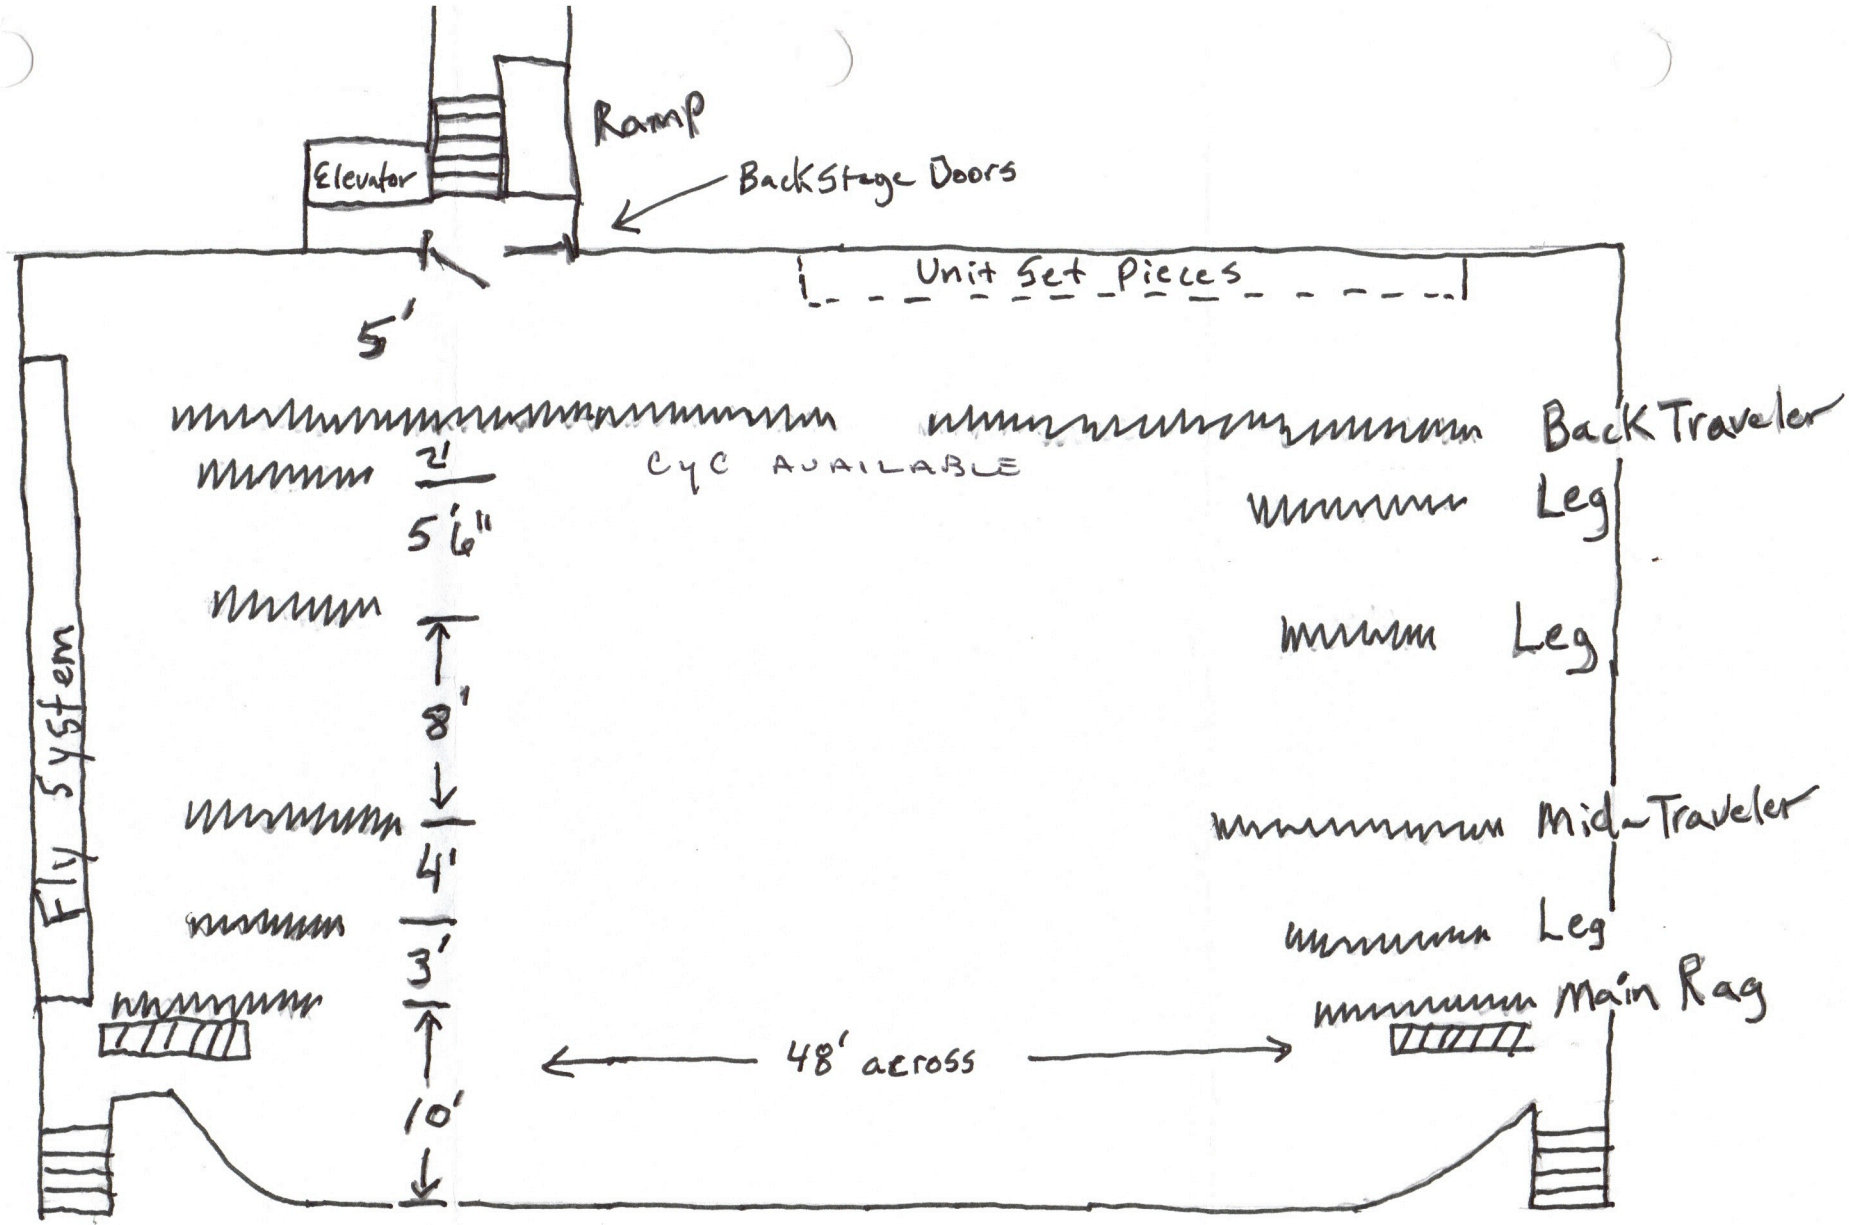 Ramp
Elevator
Backstage Doors
Unit Set Pieces
5'
Back Traveler
2'
CYC AVAILABLE
Leg
5'6"
Leg
8'
Fly System
Mid-Traveler
4'
Leg
3'
Main Rag
48' across
10'